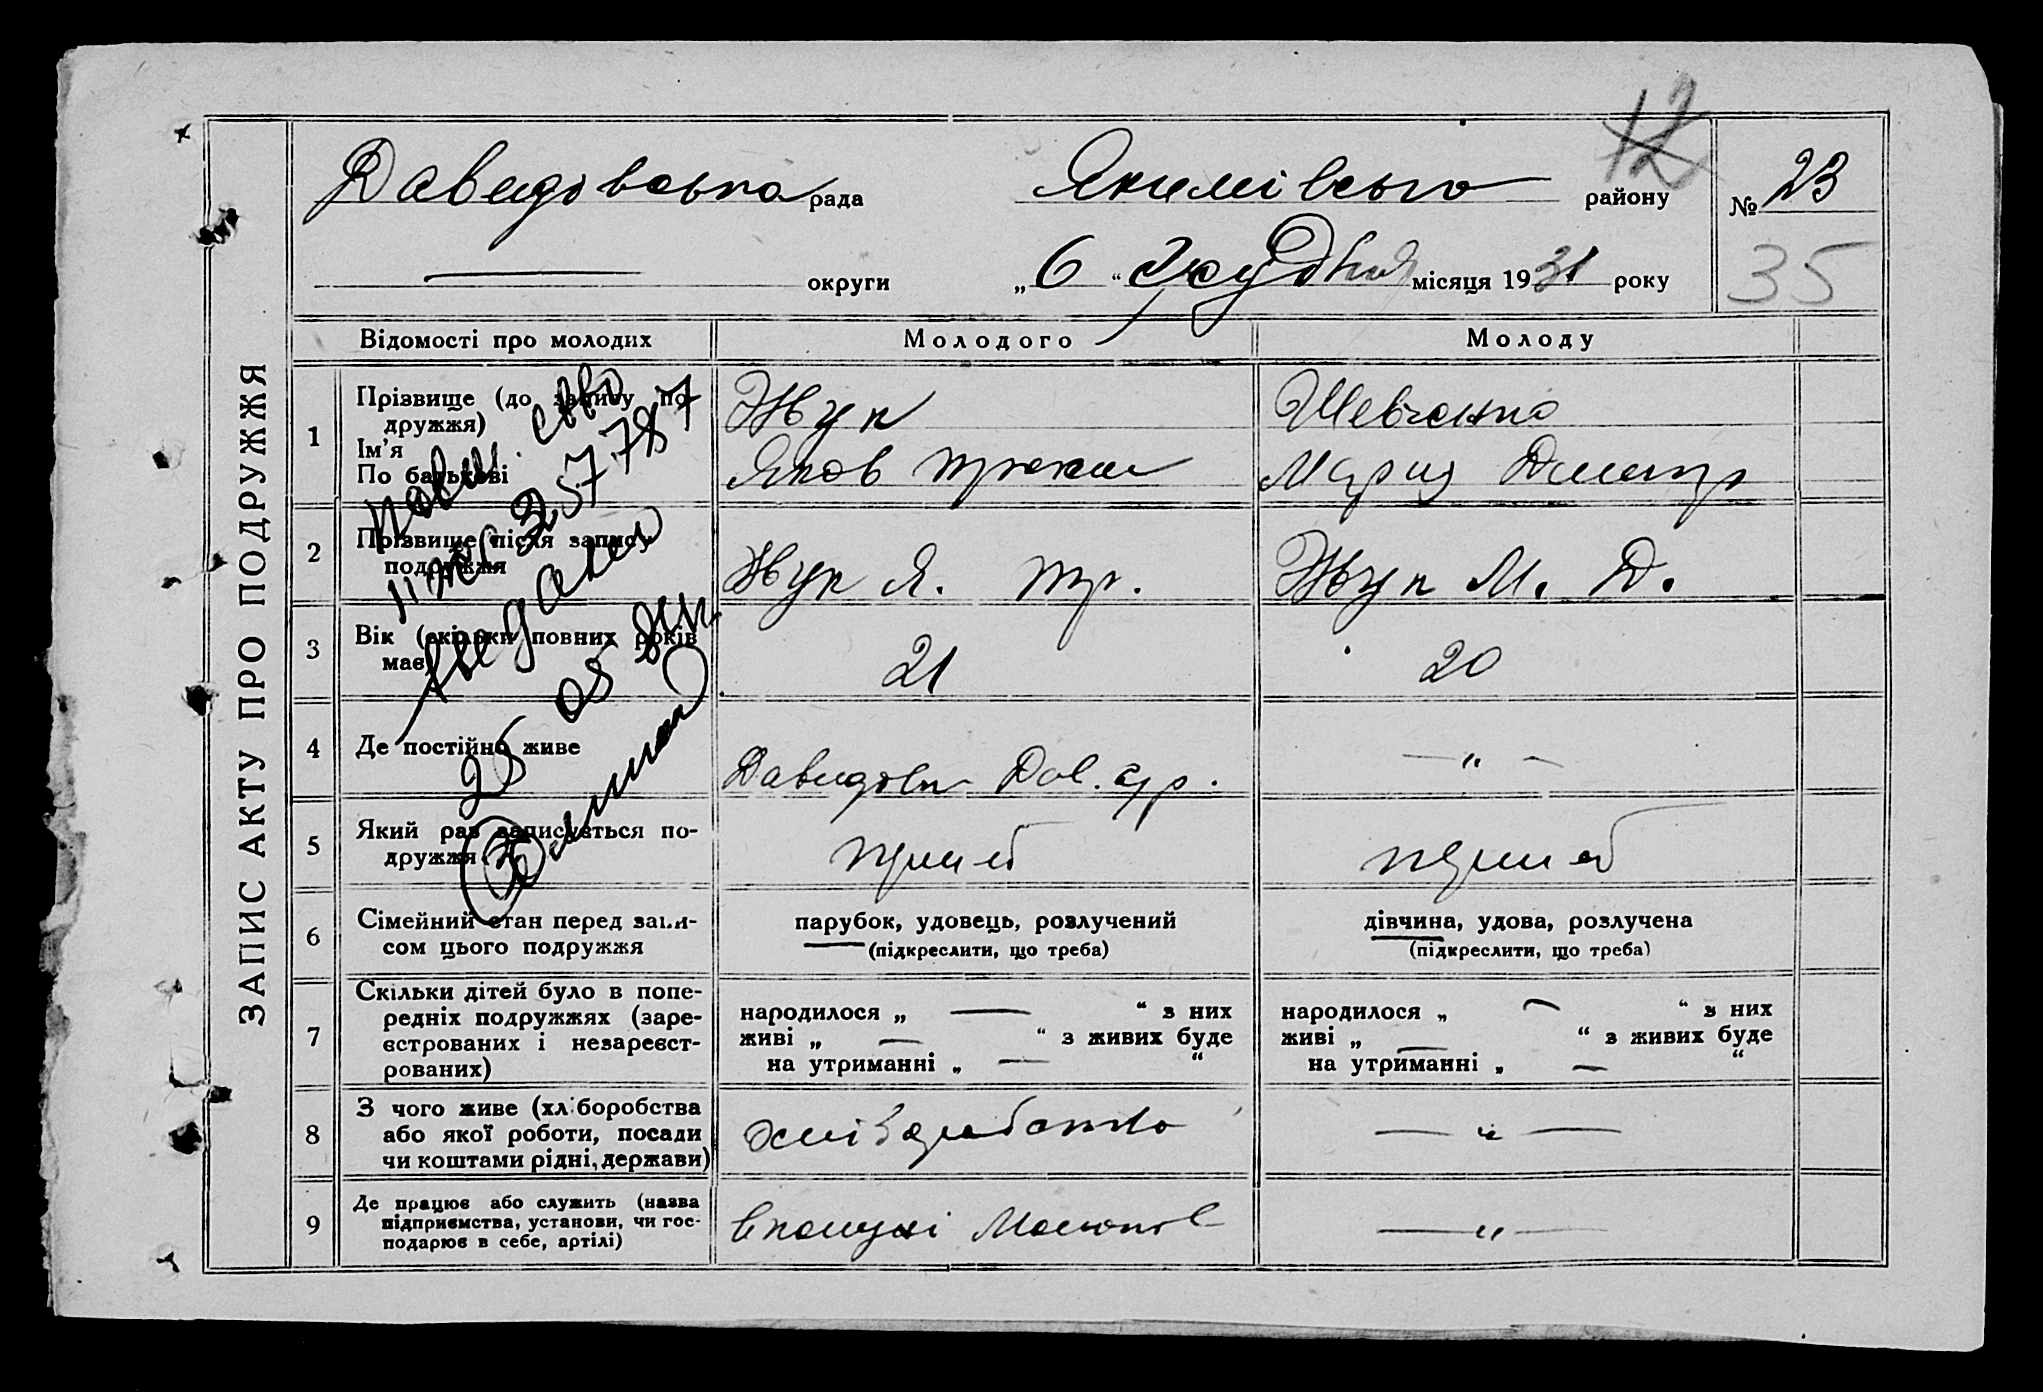 ЗАПИС АКТУ ПРО ПОДРУЖЖЯ
Давидовська рада Якимівського району № 23
12
— округи „ 6 “ Грудня місяця 1931 року
35
Відомості про молодих Молодого Молоду
1 Прізвище (до запису подружжя) Жук Шевченко
Ім'я
По батькові Яков Марія Дмитр
2 Прізвище після запису подружжя Жук Я. Тр. Жук М. Д.
3 Вік (скільки повних років має) 21 20
4 Де постійно живе Давидовка Дав. с/р. — „ —
5 Який раз записується подружжя
6 Сімейний стан перед записом цього подружжя парубок, удовець, розлучений дівчина, удова, розлучена
(підкреслити, що треба) (підкреслити, що треба)
7 Скільки дітей було в попе-
редніх подружжях (заре-
єстрованих і незареєст-
рованих)
народилося „ — “ з них
живі „ — “ з живих буде
на утриманні „ — “
народилося „ — “ з них
живі „ — “ з живих буде
на утриманні „ — “
8 З чого живе (хліборобства
або якої роботи, посади
чи коштами рідні, держави)
— „ —
9 Де працює або служить (назва
підприємства, установи, чи гос-
подарює в себе, артілі)
— „ —
257787
25 05